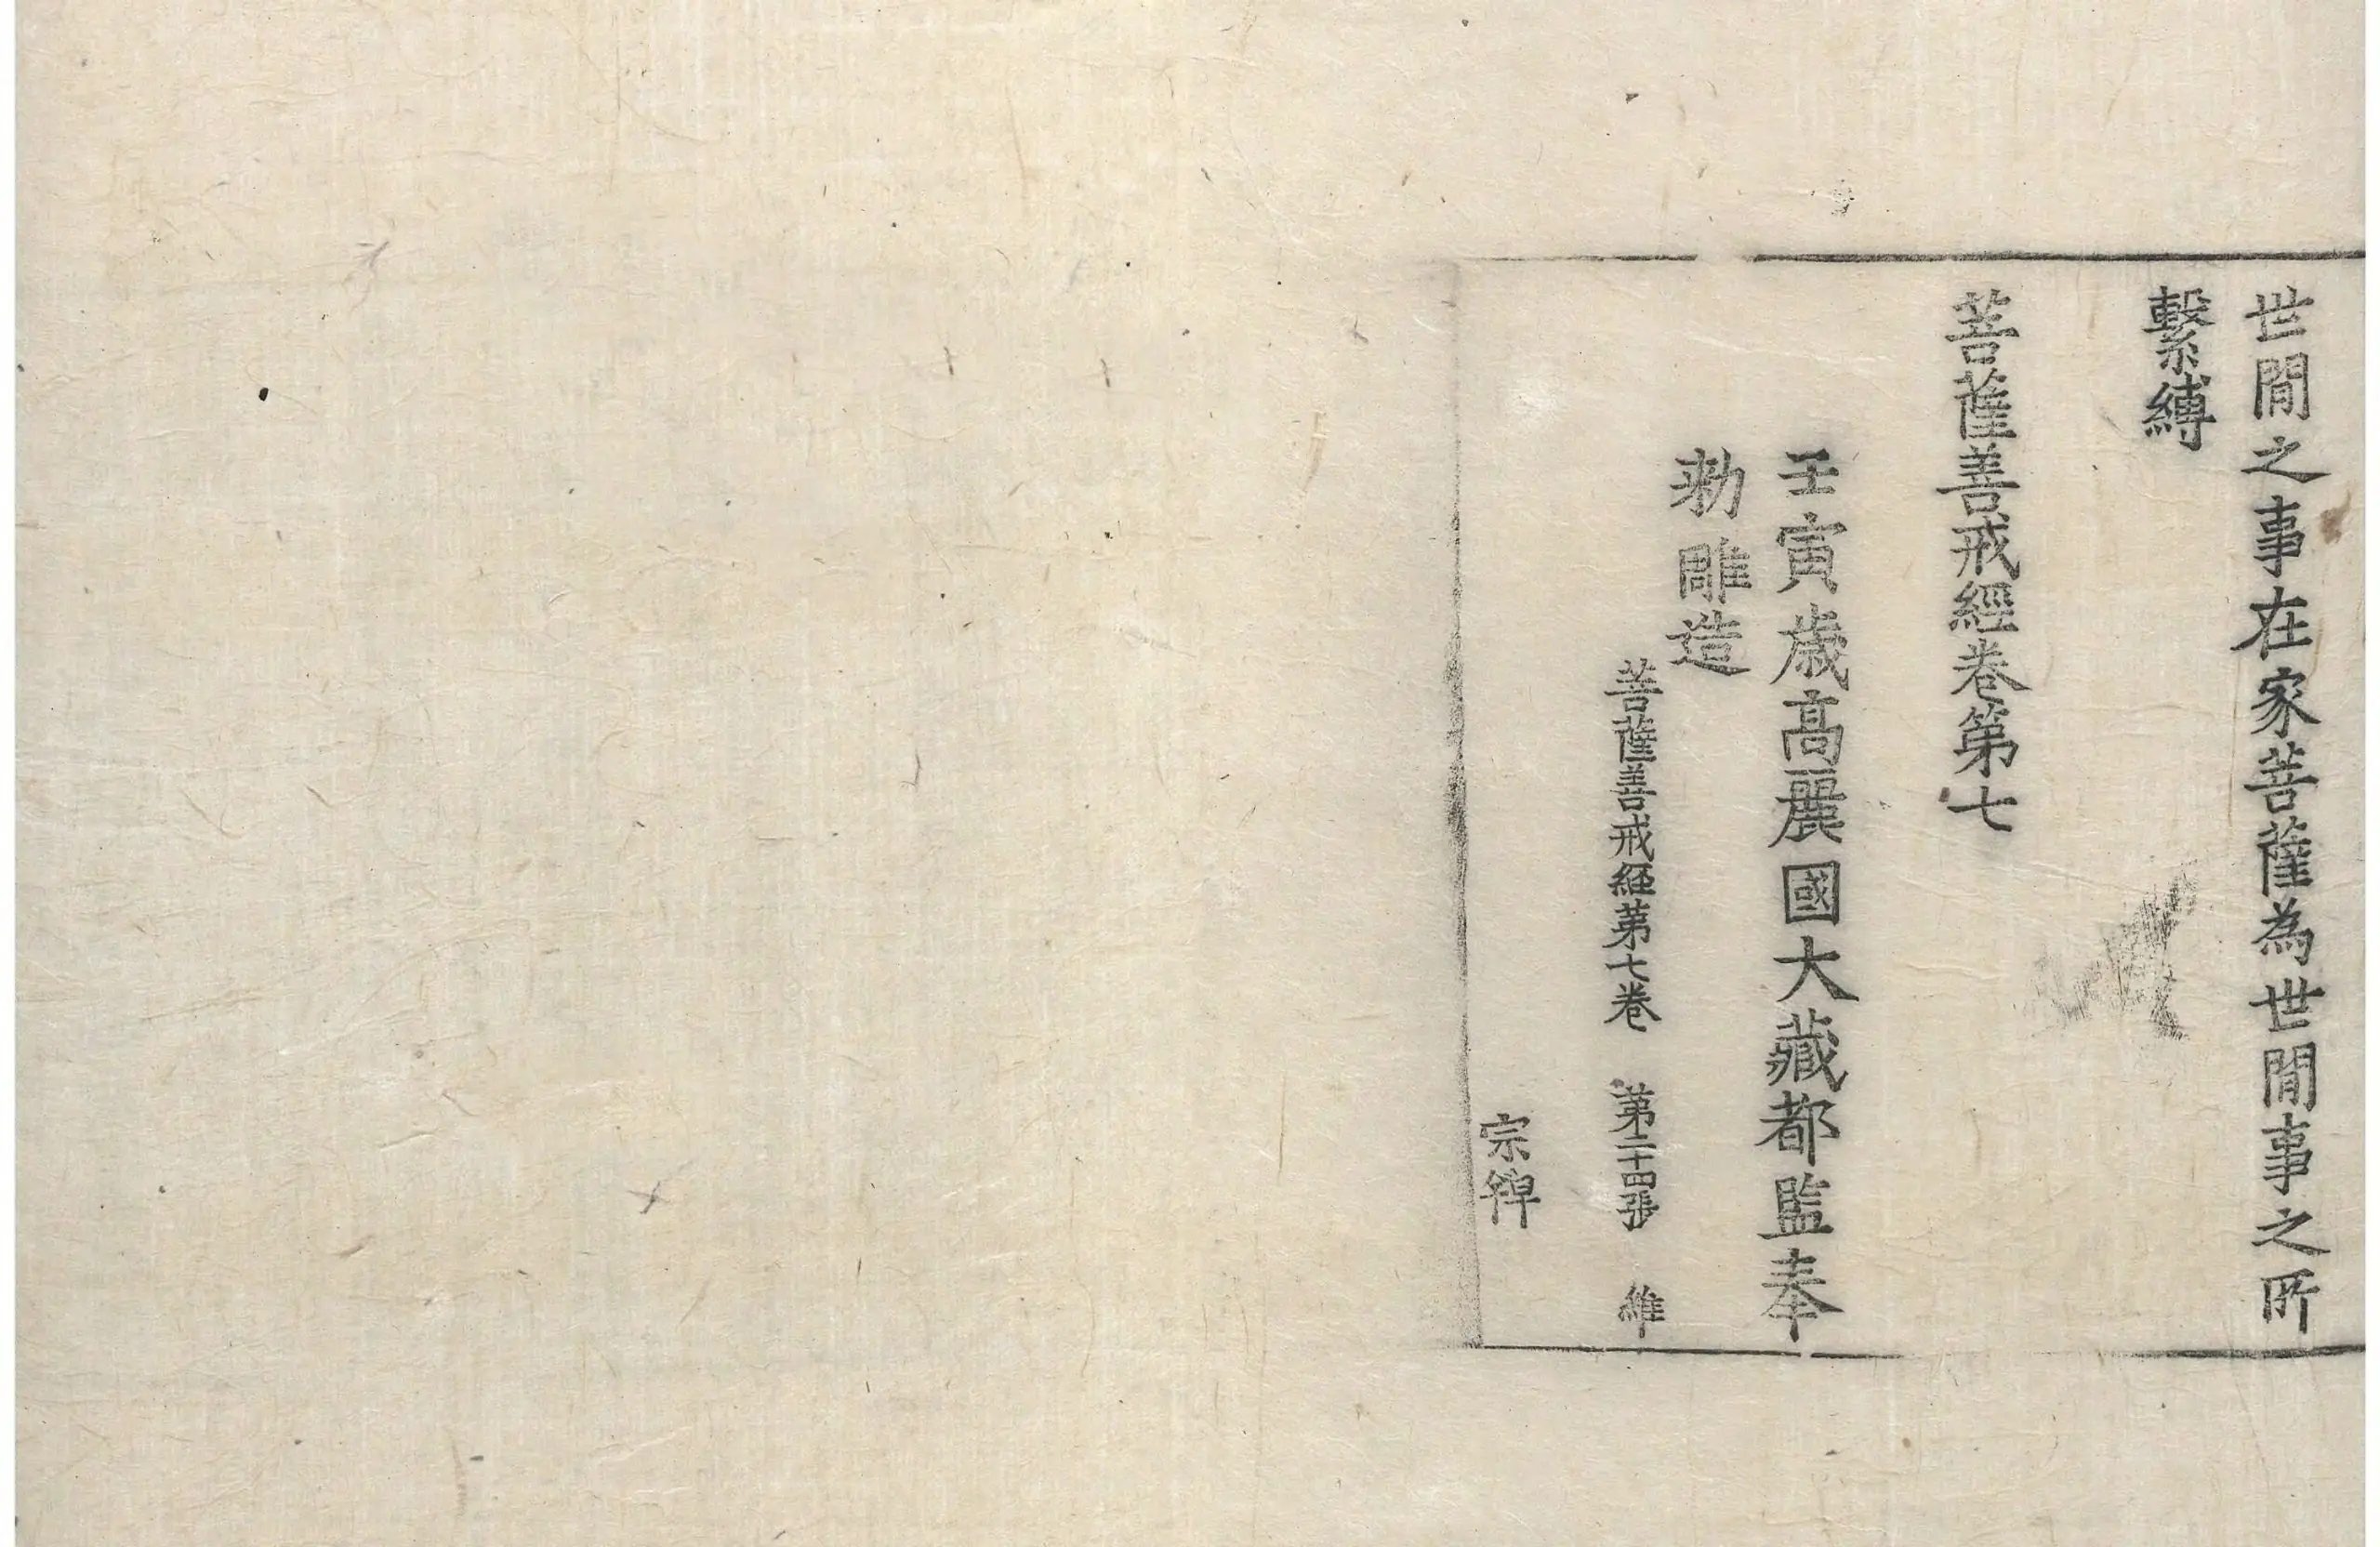 世間之事在家菩薩為世間事之所
繫縛
菩薩善戒經卷第七
壬寅歲高麗國大藏都監奉
勑雕造
菩薩善戒経第七卷 第二十四張 維
宗